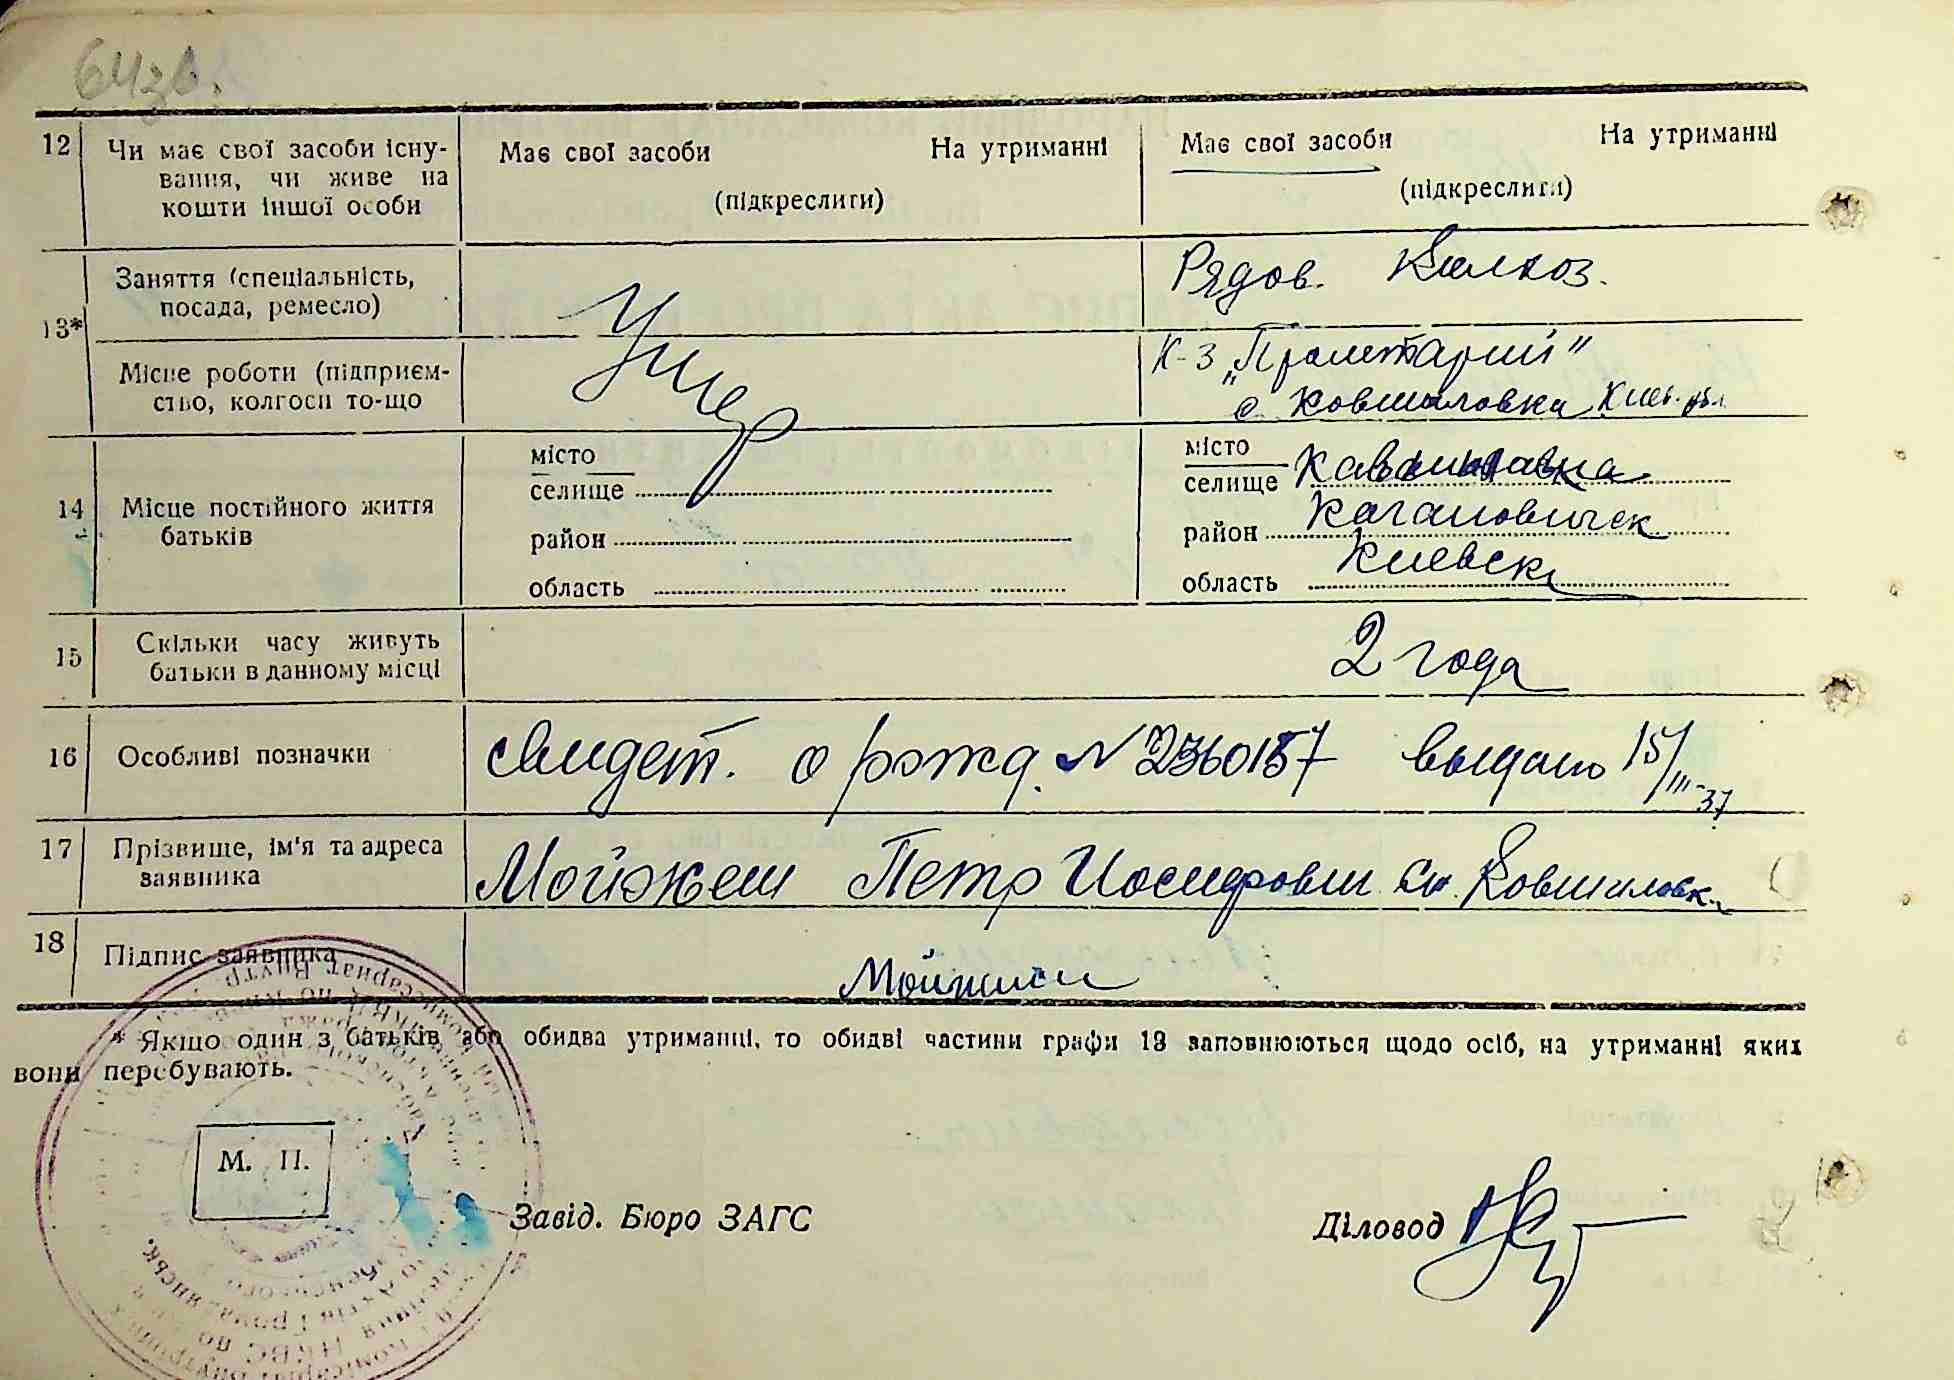 64зв.
12 Чи має свої засоби існу-
вання, чи живе на
кошти іншої особи
Має свої засоби На утриманні
(підкреслити)
Має свої засоби На утриманні
(підкреслити)
13*
Заняття (спеціальність,
посада, ремесло)
Умер
Рядов. Колхоз.
Місце роботи (підприєм-
ство, колгосп то-що
К-з „Пролетарий"
с. Ковшиловка Киев. обл
14 Місце постійного життя
батьків
місто
селище
район
область
місто
селище
район Кагановическ
область Киевск
15 Скільки часу живуть
батьки в данному місці
2 года
16 Особливі позначки
свидет. о рожд. № 2360157 выдано 15/III-37
17 Прізвище, ім'я та адреса
заявника
Мойжеш Петр Иосифович с. Ковшиловк.
18 Підпис заявника
* Якщо один з батьків або обидва утриманці, то обидві частини графи 13 заповнюються щодо осіб, на утриманні яких
вони перебувають.
М. П.
Завід. Бюро ЗАГС
Діловод